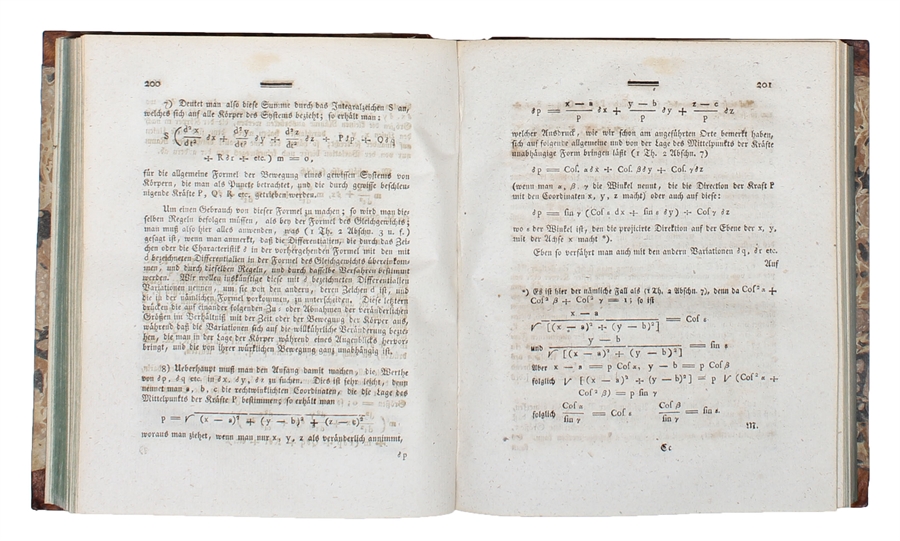 200
7) Deutet man also diese Summe durch das Integralzeichen S an,
welches sich auf alle Körper des Systems bezieht; so erhält man:
S (d²x/dt² δx + d²y/dt² δy + d²z/dt² δz + Pδp + Qδq
+ Rδr + etc.) m = 0,
für die allgemeine Formel der Bewegung eines gewissen Systems von
Körpern, die man als Punkte betrachtet, und die durch gewisse beschleu-
nigende Kräfte P, Q, R, etc. getrieben werden.
Um einen Gebrauch von dieser Formel zu machen; so wird man die-
selben Regeln befolgen müssen, als bey der Formel des Gleichgewichts;
man muß also hier alles anwenden, was (1 Th. 2 Abschn. 3 u. f.)
gesagt ist, wenn man anmerkt, daß die Differentialien, die durch das Zei-
chen oder die Characteristik δ in der vorhergehenden Formel mit den mit
d bezeichneten Differentialien in der Formel des Gleichgewichts übereinkom-
men, und durch dieselben Regeln, und durch dasselbe Verfahren bestimmt
werden. Wir wollen inskünftige diese mit δ bezeichneten Differentialien
Variationen nennen, um sie von den andern, deren Zeichen d ist, und
die in der nämlichen Formel vorkommen, zu unterscheiden. Diese letztern
drücken die auf einander folgenden Zu- oder Abnahmen der veränderlichen
Größen im Verhältniß mit der Zeit oder der Bewegung der Körper aus,
während daß die Variationen sich auf die willkührliche Veränderung bezie-
hen, die man in der Lage der Körper während eines Augenblicks hervor-
bringt, und die von ihrer würklichen Bewegung ganz unabhängig ist.
8) Ueberhaupt muß man den Anfang damit machen, die Werthe
von δp, δq etc. in δx, δy, δz zu suchen. Dies ist sehr leicht, denn
nennet man a, b, c die rechtwinklichten Coordinaten, die die Lage des
Mittelpunkts der Kräfte P bestimmen; so erhält man
p = √(x — a)² + (y — b)² + (z — c)²
woraus man ziehet, wenn man nur x, y, z als veränderlich annimmt,
δp
201
δp = x — a/p δx + y — b/p δy + z — c/p δz
welcher Ausdruck, wie wir schon am angeführten Orte bemerkt haben,
sich auf folgende allgemeine und von der Lage des Mittelpunkts der Kräfte
unabhängige Form bringen läßt (1 Th. 2 Abschn. 7)
δp = Cos. α δx + Cos. β δy + Cos. γ δz
(wenn man α, β, γ die Winkel nennt, die die Direction der Kraft P
mit den Coordinaten x, y, z macht) oder auch auf diese:
δp = sin γ (Cos ε dx + sin ε δy) + Cos γ δz
wo ε der Winkel ist, den die projicirte Direktion auf der Ebene der x, y,
mit der Achse x macht *).
Eben so verfährt man auch mit den andern Variationen δq, δr etc.
Auf
*) Es ist hier der nämliche Fall als (1 Th. 2 Abschn. 7), denn da Cos² α +
Cos² β + Cos² γ = 1; so ist
x — a/√[(x — a)² + (y — b)²] = Cos ε
und y — b/√[(x — a)² + (y — b)²] = sin ε
Aber x — a = p Cos α, y — b = p Cos β
folglich √[(x — a)² + (y — b)²] = p √(Cos² α +
Cos² β) = p sin γ
folglich Cos α/sin γ = Cos ε Cos β/sin γ = sin ε.
M.
Cc